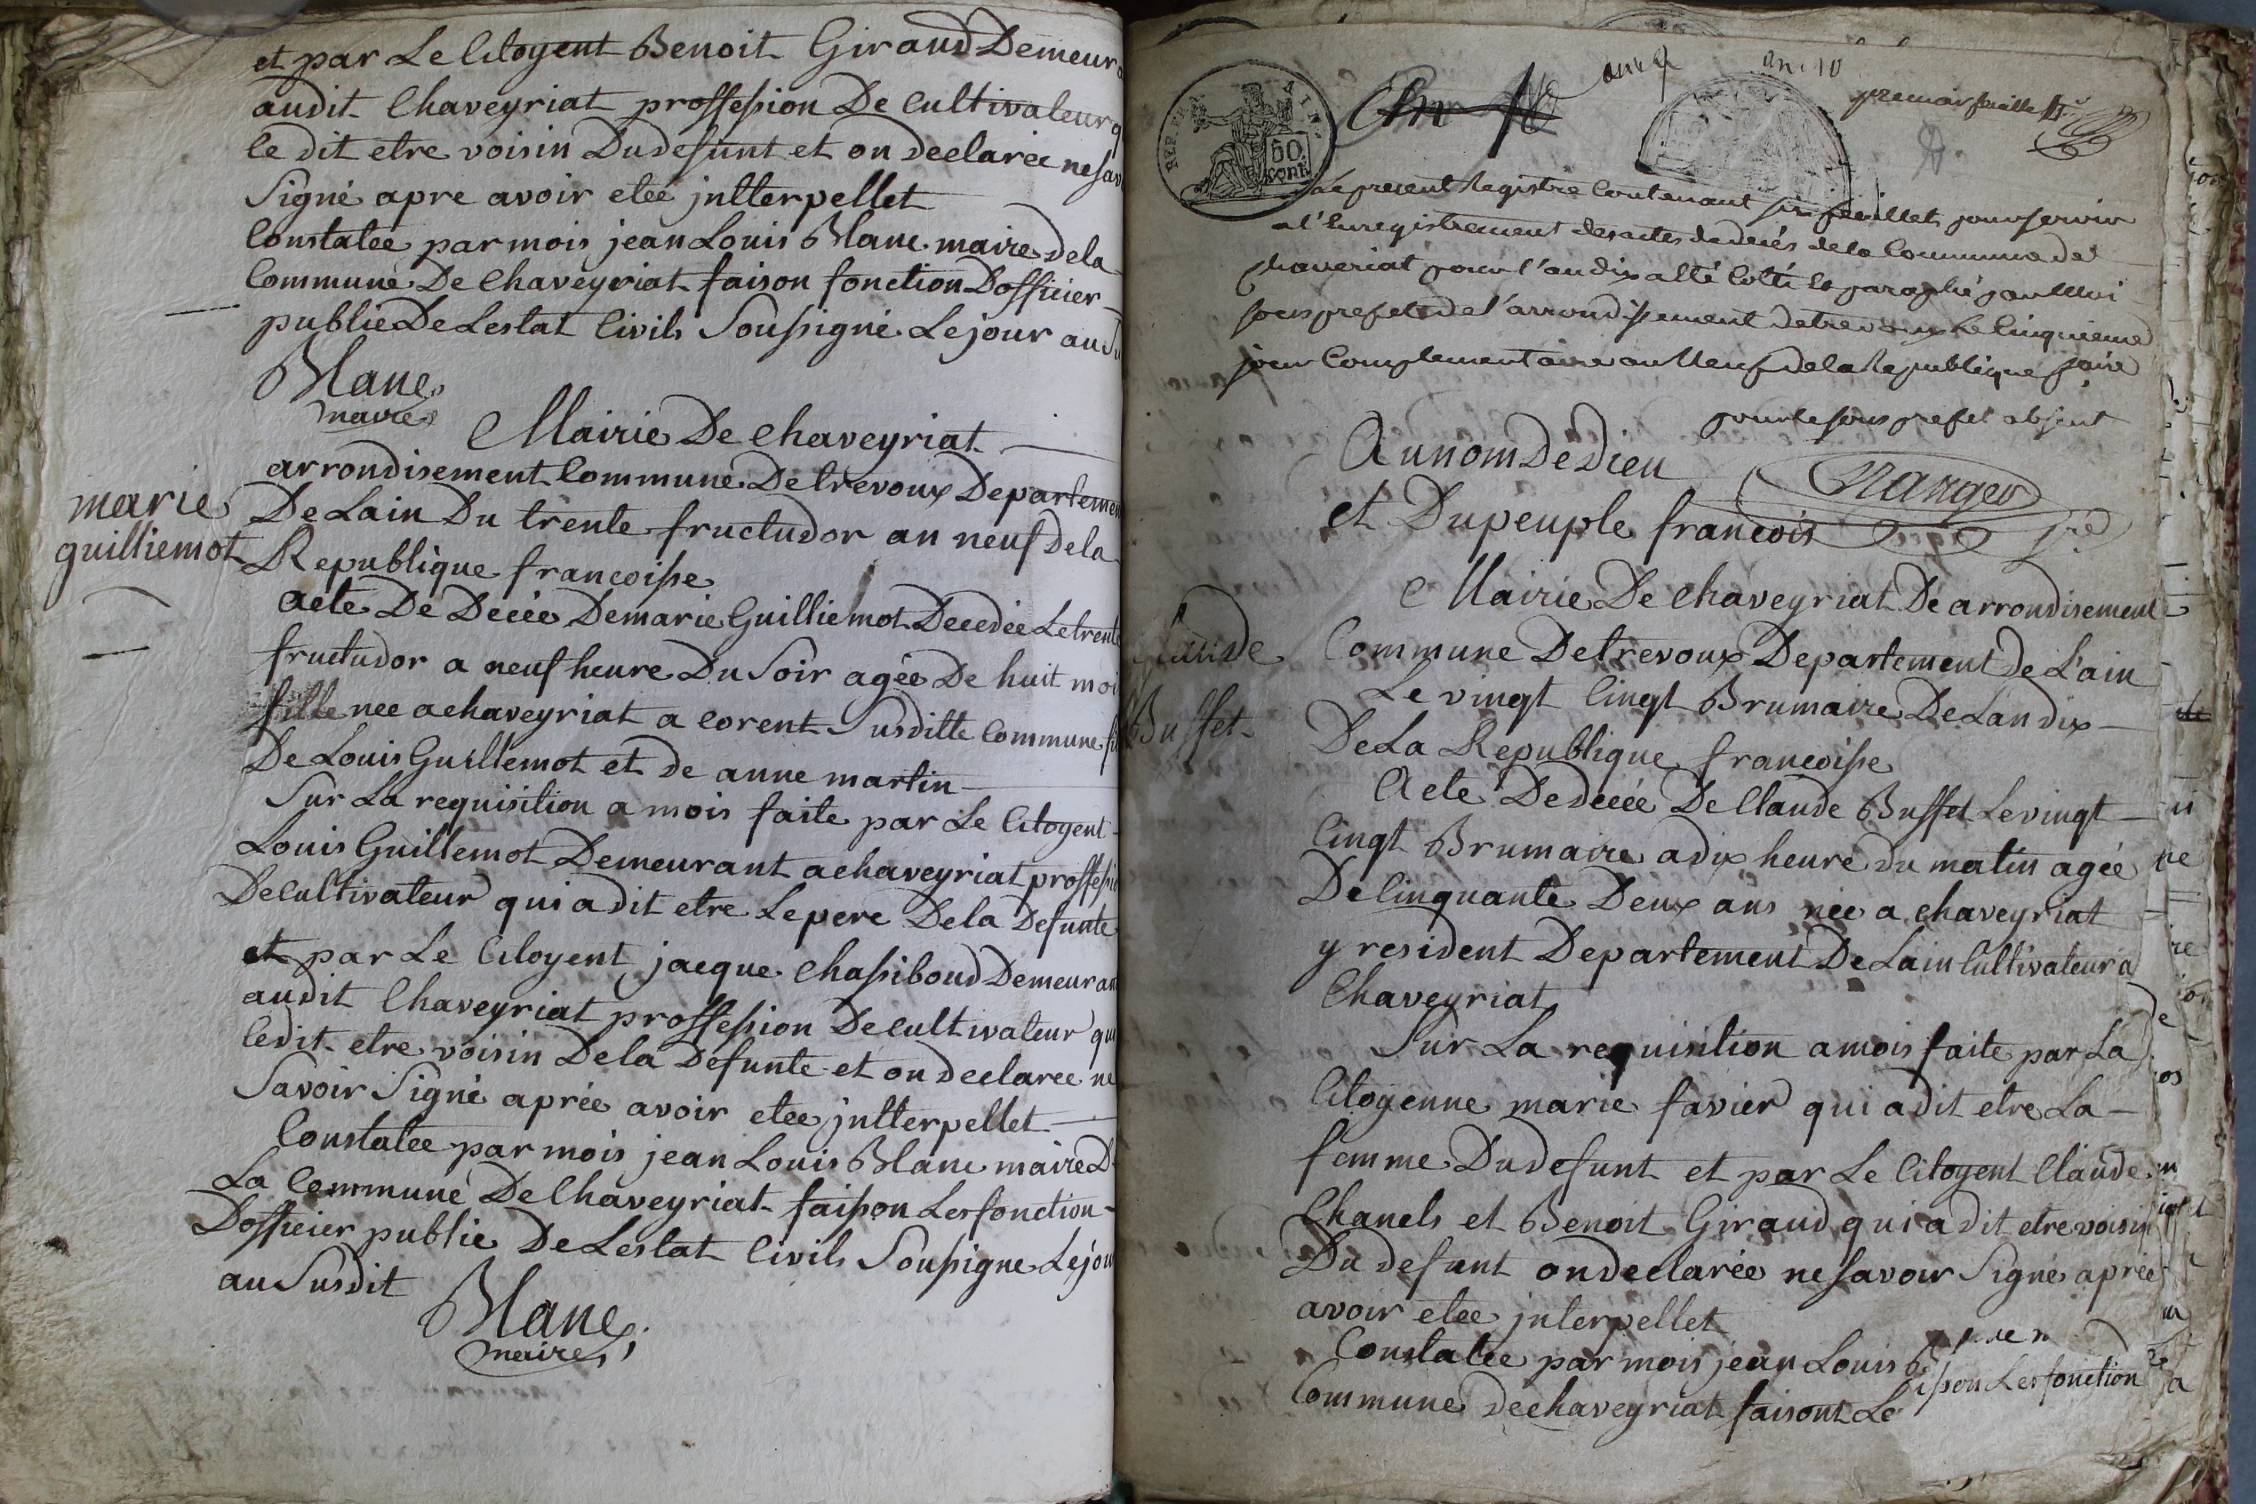 et par Le Citoyent Benoit Giraud Demeur
audit Chaveyriat proffession De Cultivateur q
le dit etre voisin Dudefunt et on declaree ne sav
Signé apre avoir etee jnterpellet
Constatee par mois jean Louis Blanc maire de la
Commune De Chaveyriat faison fonction Dofficier
publie De Lestat Civils Soussigné Le jour au Su
Blanc
maire
Mairie De chaveyriat
arrondisement Commune De trevoux Departemen
De Lain Du trente fructudor an neuf de la
Republique francoisse
marie
guilliemot
Acte De Decée De marie Guilliemot Decedée Le trent
fructudor a neuf heure Du Soir agée De huit moi
fille nee a chaveyriat a corent Susditte Commune fi
De Louis Guillemot et de anne martin
Sur La requisition a mois faite par Le Citoyent
Louis Guillemot Demeurant a chaveyriat proffessi
De cultivateur qui a dit etre Le pere De la Defunte
et par Le Citoyent jacque Chassiboud Demeuran
audit Chaveyriat proffession De cultivateur qu
le dit etre voisin De la Defunte et on declaree ne
Savoir Signé aprée avoir etee jnterpellet
Constatee par mois jean Louis Blanc maire D
La Commune De Chaveyriat faisson Les fonction
Dofficier publie De Lestat Civils Soussigne Le jou
au Susdit
Blanc
maire
REP. FRA. AIN.
60 cent.
An 10
an 9
an 10
premier feuillet
Le present Registre Contenant six feuillets pour servir
a l'Enregistrement des actes de decés de la Commune de
Chaveriat pour l'an dix a été Cotté et paraphé par Moi
sous prefet de l'arrondissement de trevoux Le Cinquieme
jour Complementaire an Neuf de la Republique
pour le sous prefet absent
Au nom De Dieu
et Du peuple francois
Mairie De chaveyriat De arrondisement
Commune De trevoux Departement de L'ain
Le vingt Cingt Brumaire De Lan dix
De La Republique francoisse
Claude
Buffet
Acte De decée De Claude Buffet Le vingt
Cingt Brumaire a dix heure du matin agée
De Cinquante Deux ans née a chaveyriat
y resident Departement De Lain Cultivateur a
Chaveyriat
Sur La requisition a mois faite par La
Citoyenne marie favier qui a dit etre La
femme Du defunt et par Le Citoyent Claude
Chanels et Benoit Giraud qui a dit etre voisin
Du defunt on declarée ne savoir Signé aprée
avoir etee jnterpellet
Constatee par mois jean Louis
Commune de chaveyriat faisont Le
Les fonction